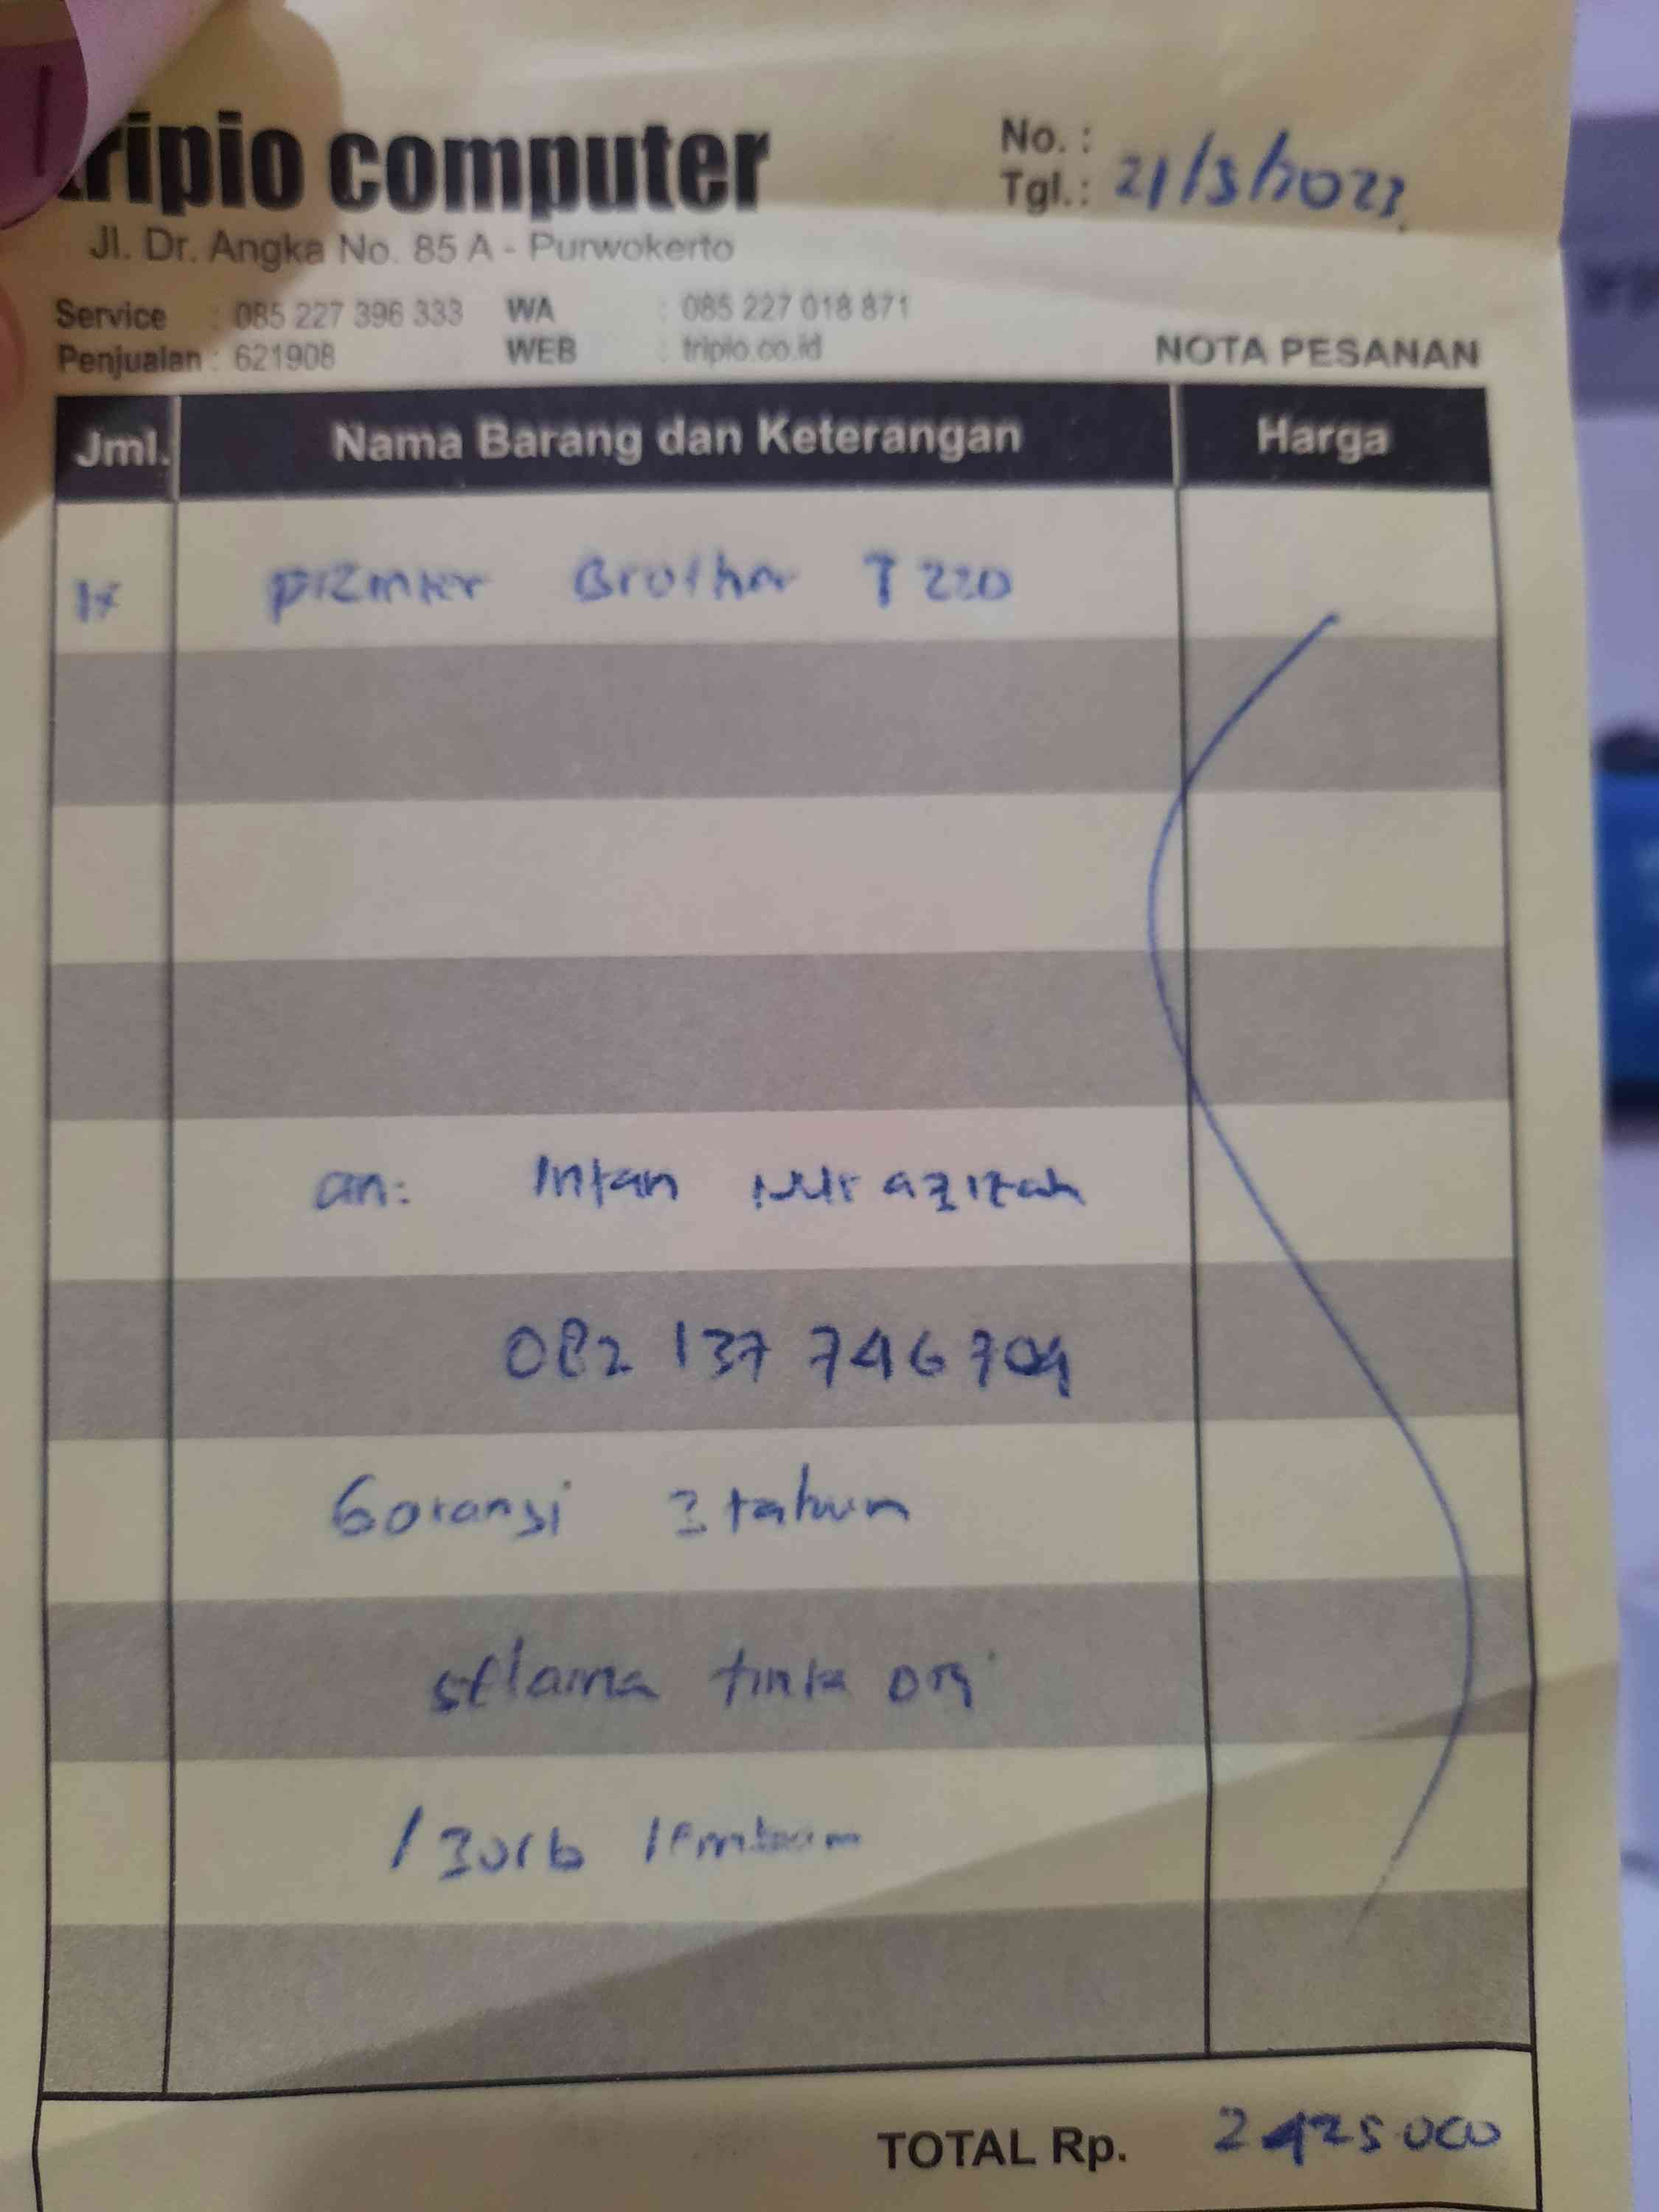 tripio computer
No. :
Tgl.: 21/3/2023
Jl. Dr. Angka No. 85 A - Purwokerto
Service : 085 227 396 333 WA : 085 227 018 871
Penjualan : 621908 WEB : tripio.co.id
NOTA PESANAN
Jml. Nama Barang dan Keterangan Harga
1x Brother T220
an: Intan Nur azizah
082 137 746 704
Garansi 3 tahun
selama tinta ori
/ 30rb lembaran
TOTAL Rp. 2425.000